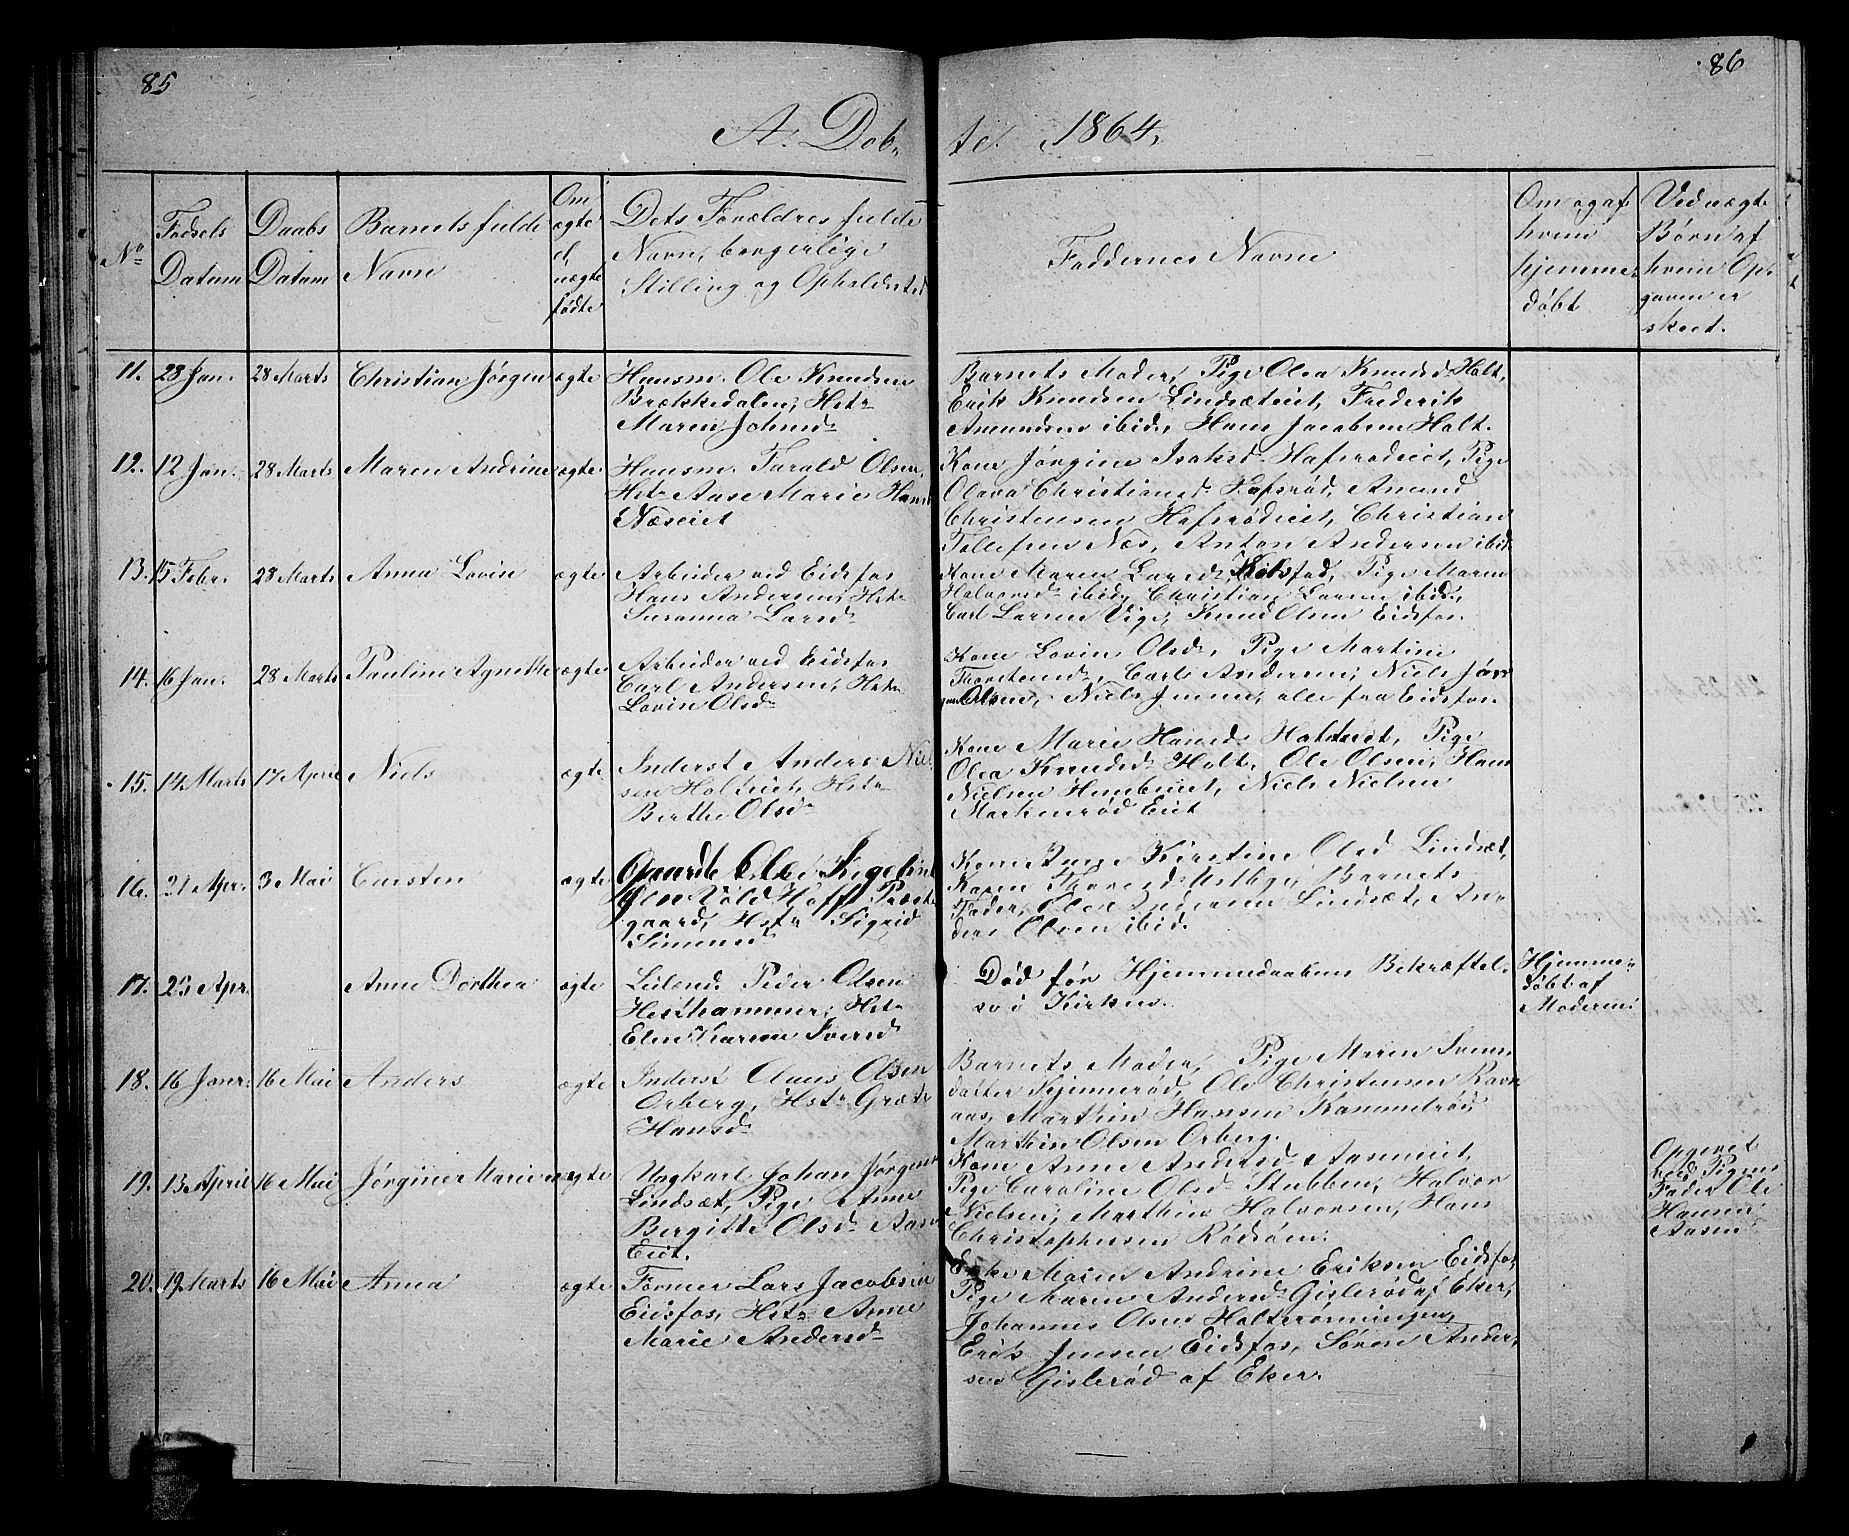 85
86
A. Døb-
te. 1864.
No
Fødsels
Datum
Daabs
Datum
Barnets fulde
Navn
Om
ægte
el.
uægte
fødte
Dets Forældres fulde
Navn, borgerlige
Stilling og Opholdssted
Faddernes Navne
Om og af
hvem
hjemme-
døbt
Ved uægte
Børn af
hvem Op-
gaven er
skeet.
11. 28 Jan. 28 Marts Christian Jørgen ægte
Huusm. Ole Knudsen
Brækkedalen, Hstr
Maren Johnsd.
Barnets Moder, Pige Olea Knudsd Holt,
Erik Knudsen Lindsæteiet, Frederik
Amundsen ibid., Hans Jacobsen Holt.
12. 12 Jan. 28 Marts Maren Andrine ægte
Huusm. Tarald Olsen,
Hstr Aase Marie Hansd
Næseiet
Kone Jørgine Isaksd Hafsrødeiet, Pige
Olava Christiansd. Hafsrød, Amund
Christensen Hafsrødeiet, Christian
Tollefsen Næs, Anton Andersen ibid.
13. 15 Febr. 28 Marts Anna Lovise ægte
Arbeider ved Eidsfos
Hans Andersen, Hstr
Susanna Larsd.
Kone Maren Larsd., Pige Maren
Halvorsd. ibid, Christian Larsen ibid.,
Carl Larsen Vige, Knud Olsen Eidsfos.
14. 16 Jan. 28 Marts Pauline Agnethe ægte
Arbeider ved Eidsfos
Carl Andersen, Hstr
Lovise Olsd.
Kone Lovise Olsd., Pige Martine
Thorstensd., Carl Andersen, Niels Jør-
gen Olsen, Niels Jensen, alle fra Eidsfos.
15. 14 Marts 17 April Niels ægte
Inderst Anders Niel-
sen Holteiet, Hstr
Berthe Olsd.
Kone Marie Hansd. Holteiet, Pige
Olea Knudsd. Holt, Ole Olsen, Hans
Nielsen, Niels Nielsen
Markerød Eiet
16. 21 Apr. 3 Mai Carsten ægte
Ole
Hoff Præste-
gaard, Hstr Sigrid
Simensd.
Kone Kirstine Olsd Lindsæt,
Karen Thoresd, Barnets
Fader, Andersen Lindsæt, An-
ders Olsen ibid.
17. 23 Apr. Anne Dorthea ægte
Leilend. Peder Olsen
Hesthammer, Hstr
Elen Karine Iversd
Død før Hjemmedaabens Bekræftel-
se i Kirken.
Hjemme-
døbt af
Moderen.
18. 16 Janr. 16 Mai Anders ægte
Inderst Claus Olsen
Orberg, Hstr Grete
Hansd.
Barnets Moder, Pige Maren Svens-
datter Kjennerød, Ole Christensen Ravn-
aas, Marthin Hansen Kammelrød,
Marthin Olsen Orberg.
19. 13 April 16 Mai Jørgine Marie uægte
Ungkarl Johan Jørgensen
Lindsæt, Pige Anne
Bergitte Olsd. Aasen
Eiet.
Kone Anne Andersd Aaseneiet,
Pige Caroline Olsd Stubben, Halvor
Nielsen, Marthin Halvorsen, Hans
Christophersen Rødsøen.
Opgivet
ved Pigens
Fader Ole
Hansen
Aasen
20. 19 Marts 16 Mai Anna ægte
Former Lars Jacobsen
Eidsfos, Hstr Anne
Marie Andersd.
Enke Maren Andrine Eriksen Eidsfos,
Pige Maren Andersd. Gislerød af Eker,
Johannes Olsen Holterønningen,
Erik Jensen Eidsfos, Søren Ander-
sen Gislerød af Eker.